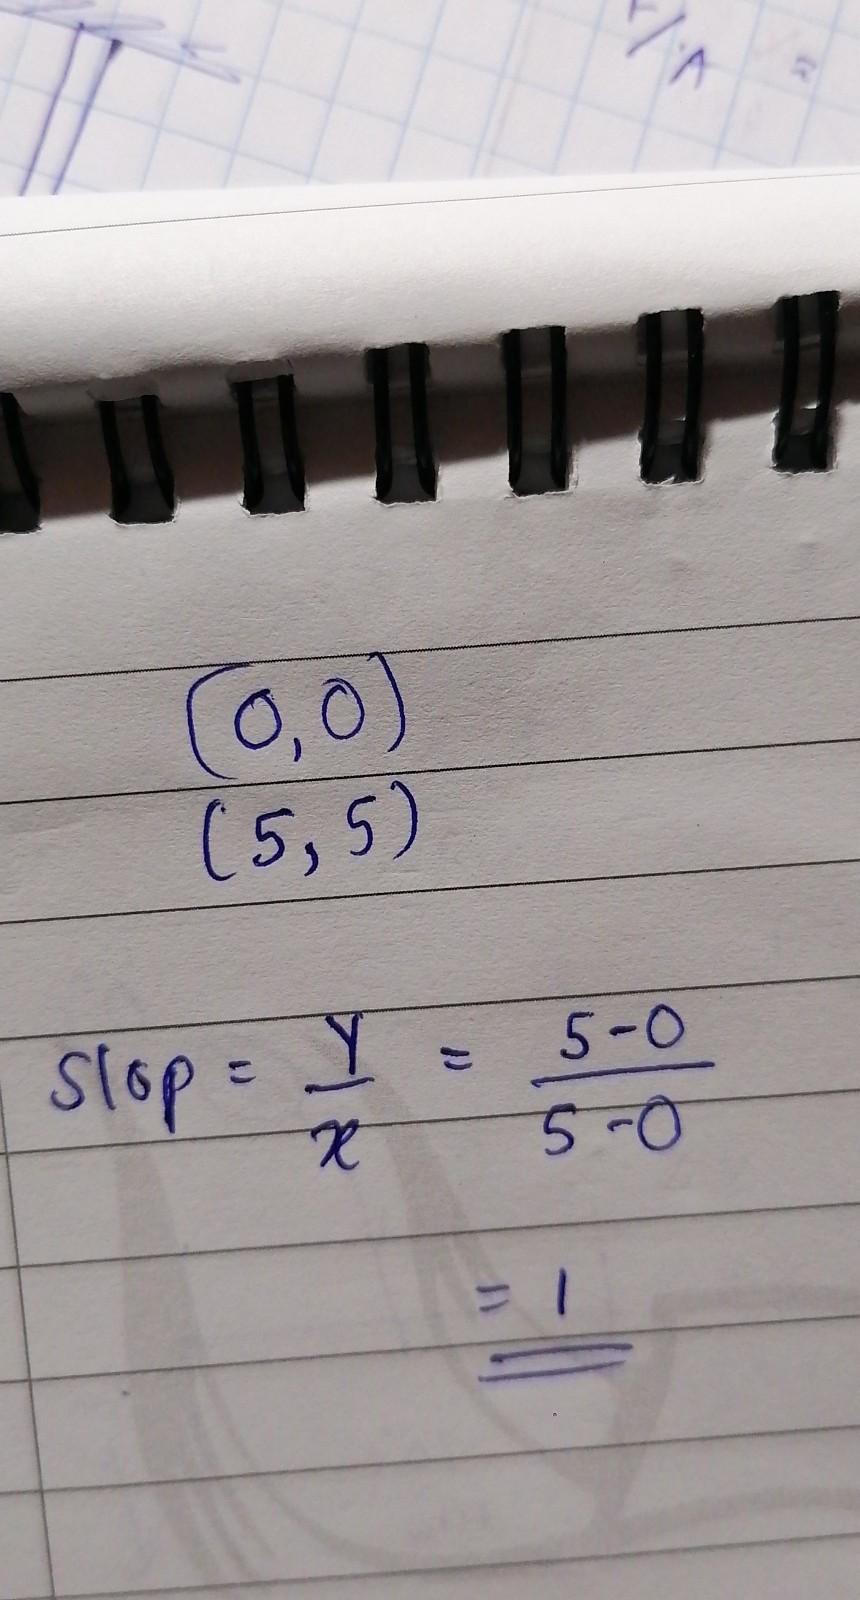 (0,0)
(5,5)
Slop = Y/x = 5-0/5-0
= 1